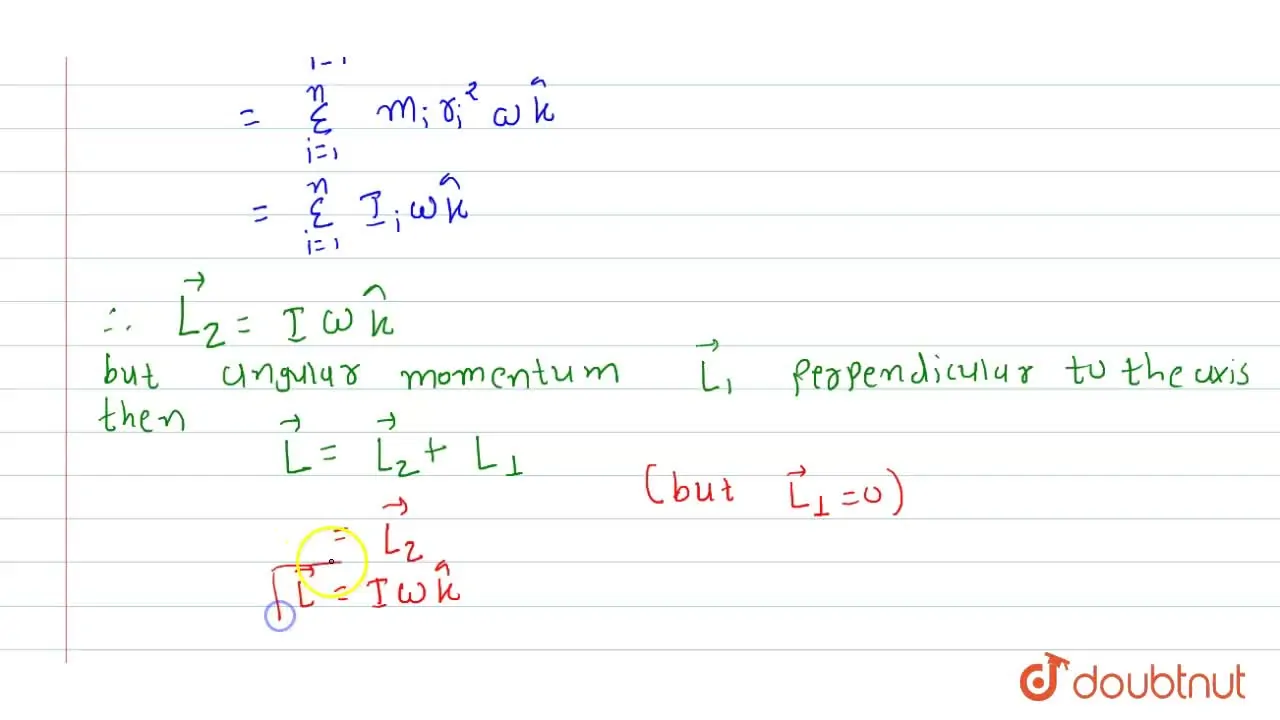 i=1
= n Σ i=1 mᵢ rᵢ² ω k̂
= n Σ i=1 Iᵢ ω k̂
∴ L⃗₂ = I ω k̂
but angular momentum L⃗₁ perpendicular to the axis
then
L⃗ = L⃗₂ + L⊥
(but L⃗⊥ = 0)
= L⃗₂
L⃗ = I ω k̂
doubtnut